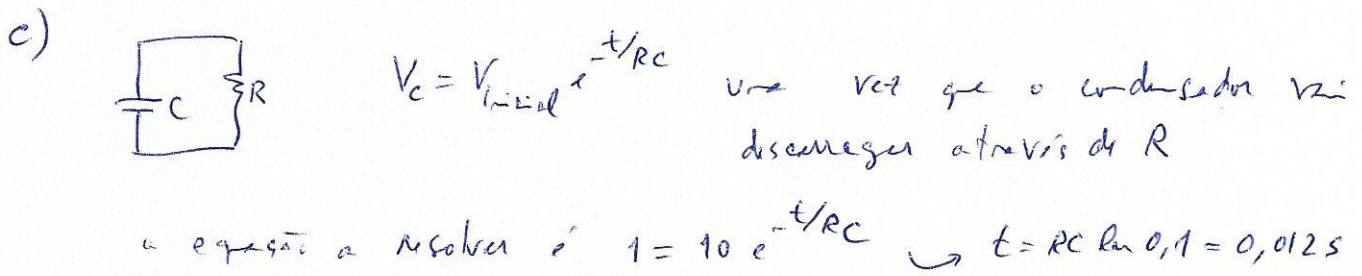 c)
C R
V_c = V_inicial e^{-t/RC} uma vez que o condensador vai
descarregar através de R
a equação a resolver é 1 = 10 e^{-t/RC} ↪ t = RC ln 0,1 = 0,012 s